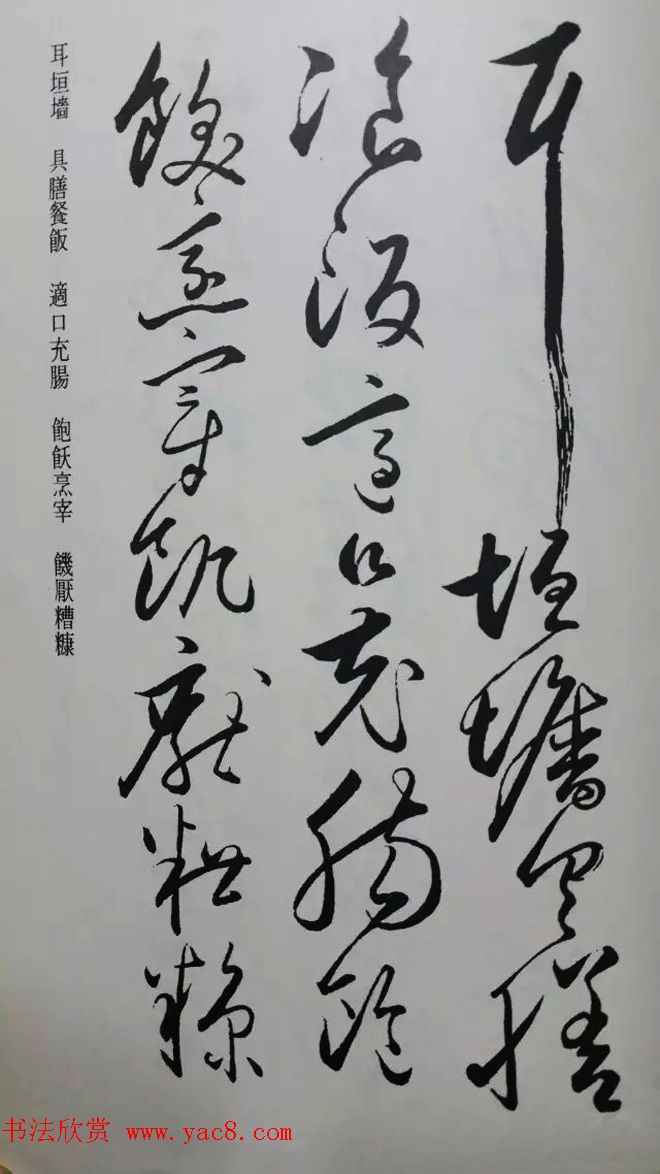 耳垣墻具膳
湌飯適口充腸飽
飫烹宰飢厭糟糠
耳垣墻 具膳餐飯 適口充腸 飽飫烹宰 饑厭糟糠
书法欣赏 www.yac8.com